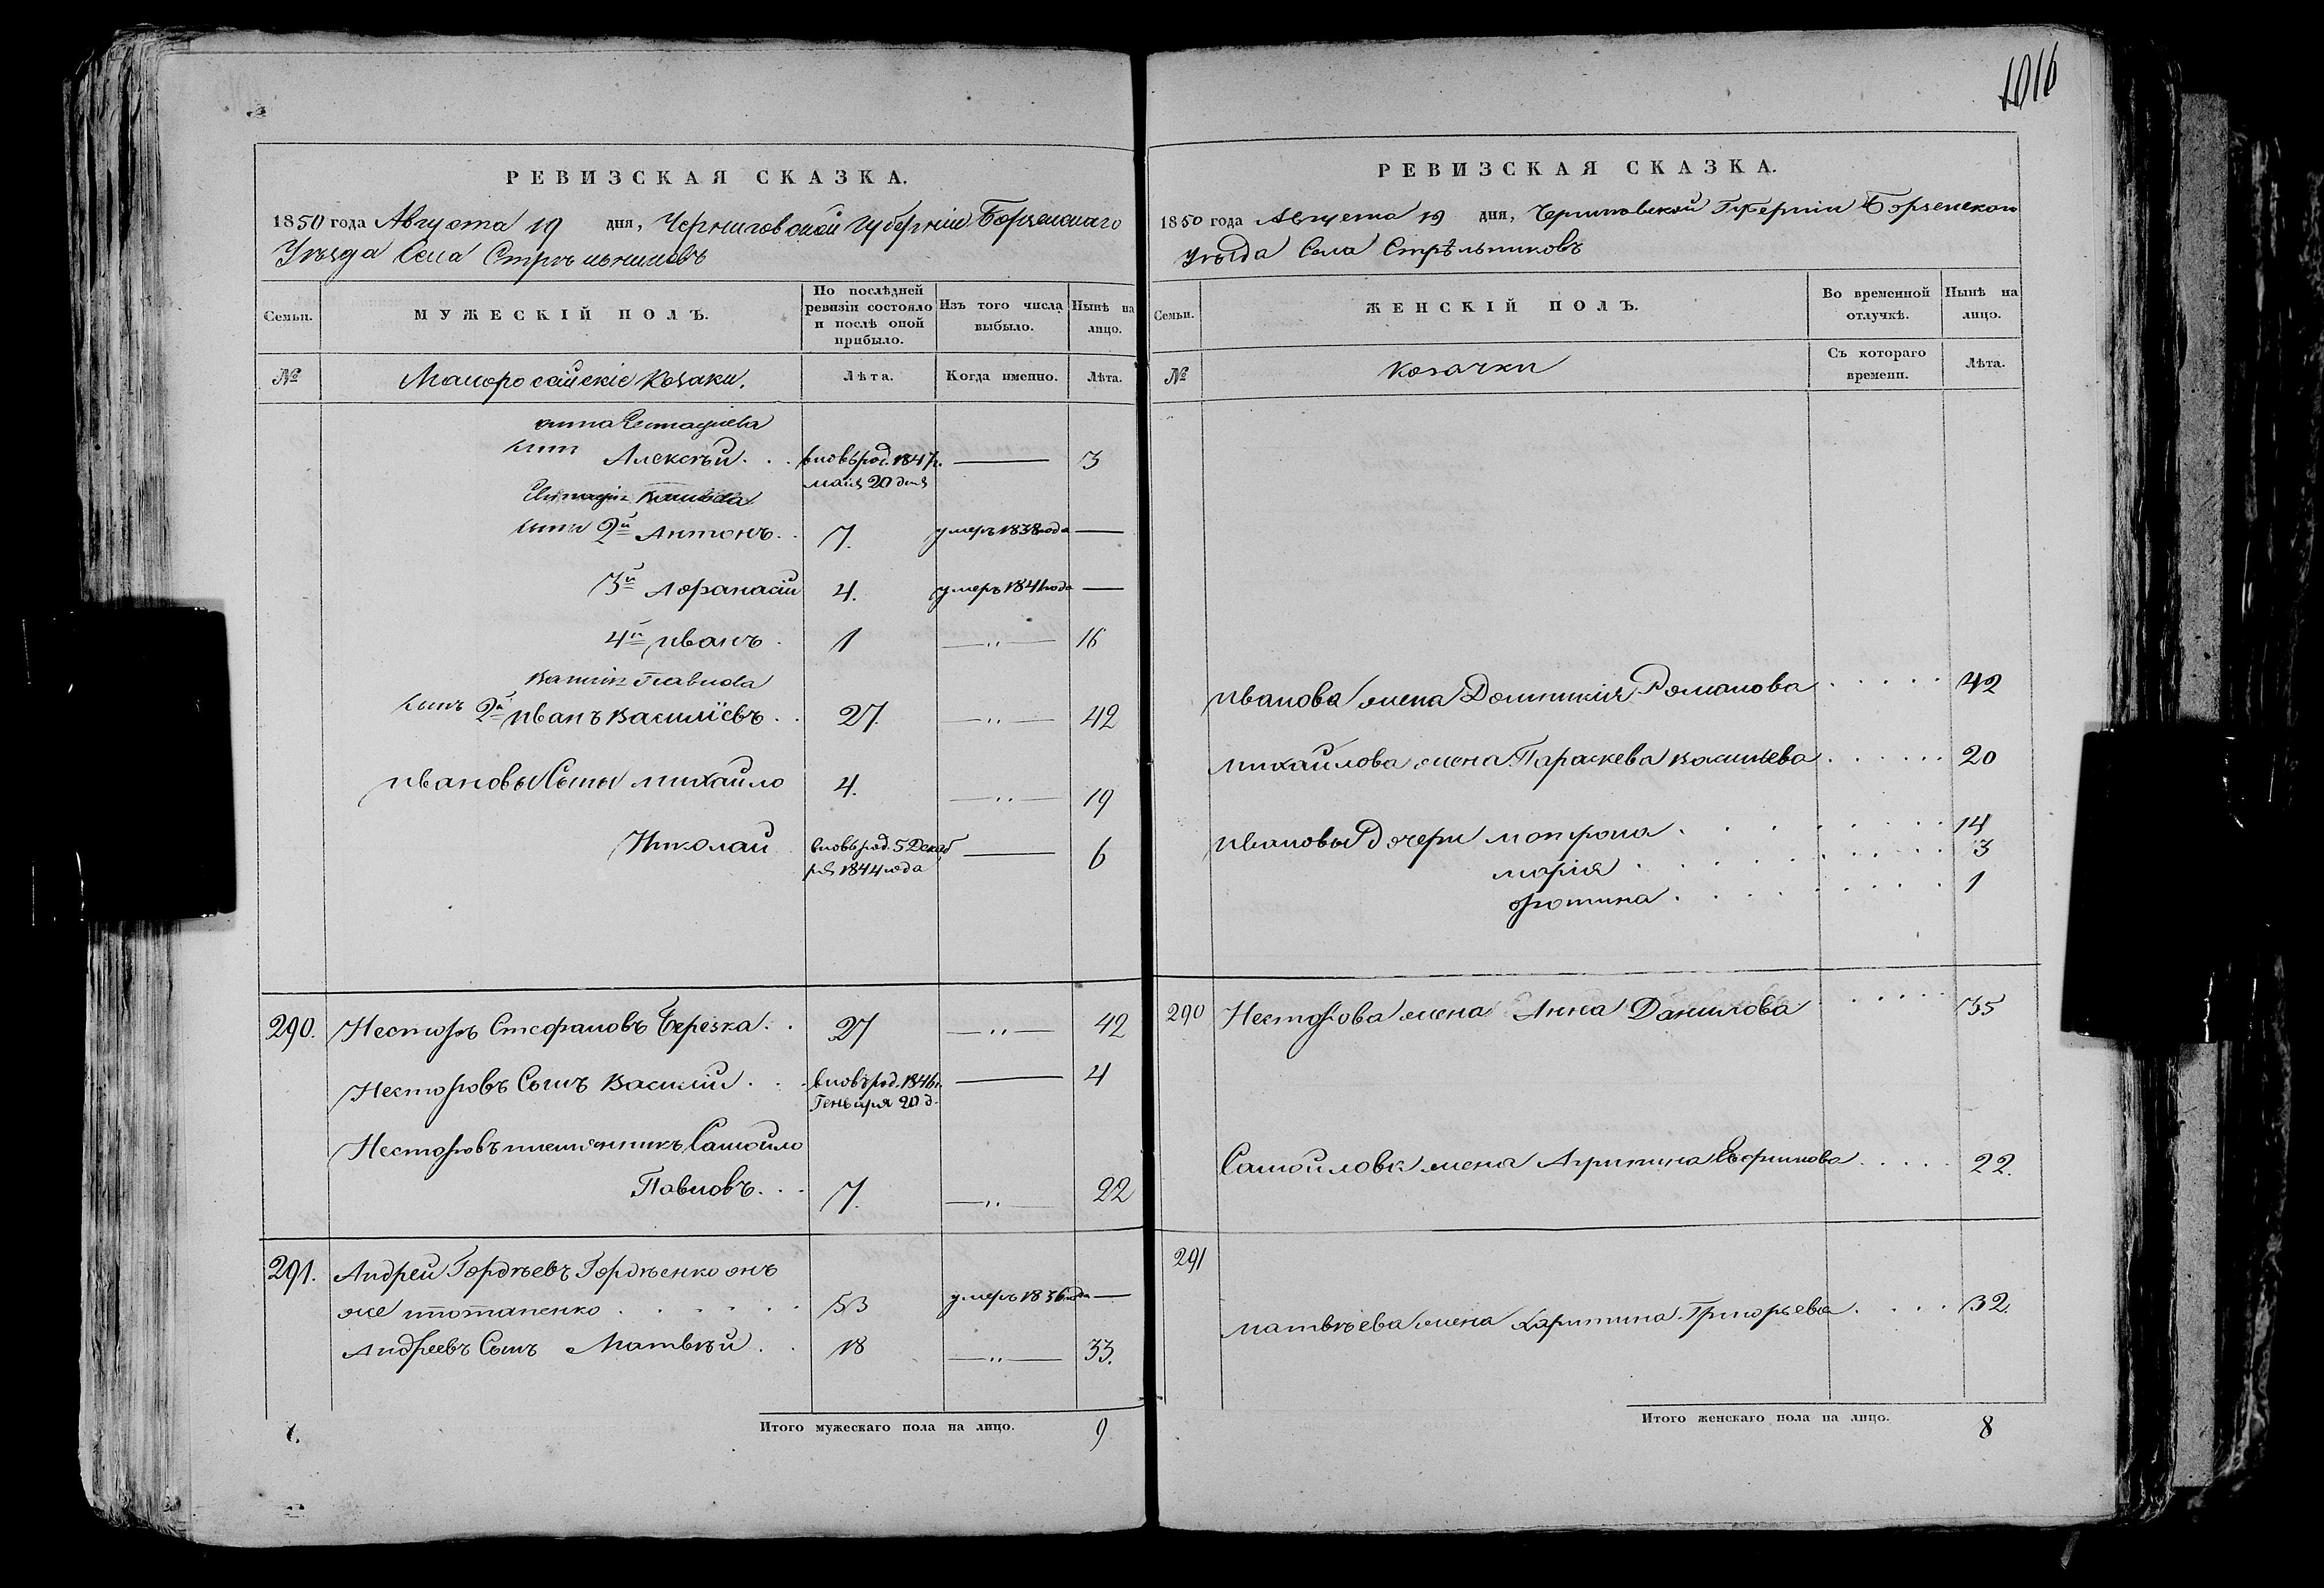 1016
РЕВИЗСКАЯ СКАЗКА.
1850 года Августа 19 дня, Черниговской губерніи Борзенскаго
Уѣзда Села Стрѣльниковъ
Семьи. МУЖЕСКІЙ ПОЛЪ. По послѣдней ревизіи состояло и послѣ оной прибыло. Изъ того числа выбыло. Нынѣ на лицо.
№ Малоросейскіе Козаки. Лѣта. Когда именно. Лѣта.
сынъ Алексѣй вновь род. 1847г. 3
мая 20 дня
сынъ 2й Антонъ 7. умеръ 1838 года —
3й Афанасій 4. умеръ 1841 года —
4й иванъ 1 —"— 16
сынъ 2й иванъ василіевъ 27. —"— 42
ивановы Сыны михайло 4. —"— 19
Николай вновь род. 5 Декаб 6
ря 1844 года
290. Несторъ Стефановъ Березка 27 —"— 42
Несторовъ Сынъ василій вновь род. 1846г. 4
Генваря 20 д.
Несторовъ племянникъ Самойло
Павловъ 7. —"— 22
291. Андрей Гордѣевъ Гордѣенко онъ
же потапенко 53 умеръ 1836 года —
Андреевъ Сынъ Матвѣй 18 —"— 33.
Итого мужескаго пола на лицо. 9
РЕВИЗСКАЯ СКАЗКА.
1850 года Августа 19 дня, Черниговской Губерніи Борзенского
уѣзда Села Стрѣльниковъ
Семьи. ЖЕНСКІЙ ПОЛЪ. Во временной отлучкѣ. Нынѣ на лицо.
№ козачки Съ котораго времени. Лѣта.
иванова жена Домникія Романова 42
михайлова жена Параскева васильева 20
ивановы дочери мотрона 14
марія 3
фотина 1
290 Несторова жена Анна Данилова 35
Самойлова жена Агрипина Ефимова 22.
291
матвѣева жена харитина Григорьева 32.
Итого женскаго пола на лицо. 8